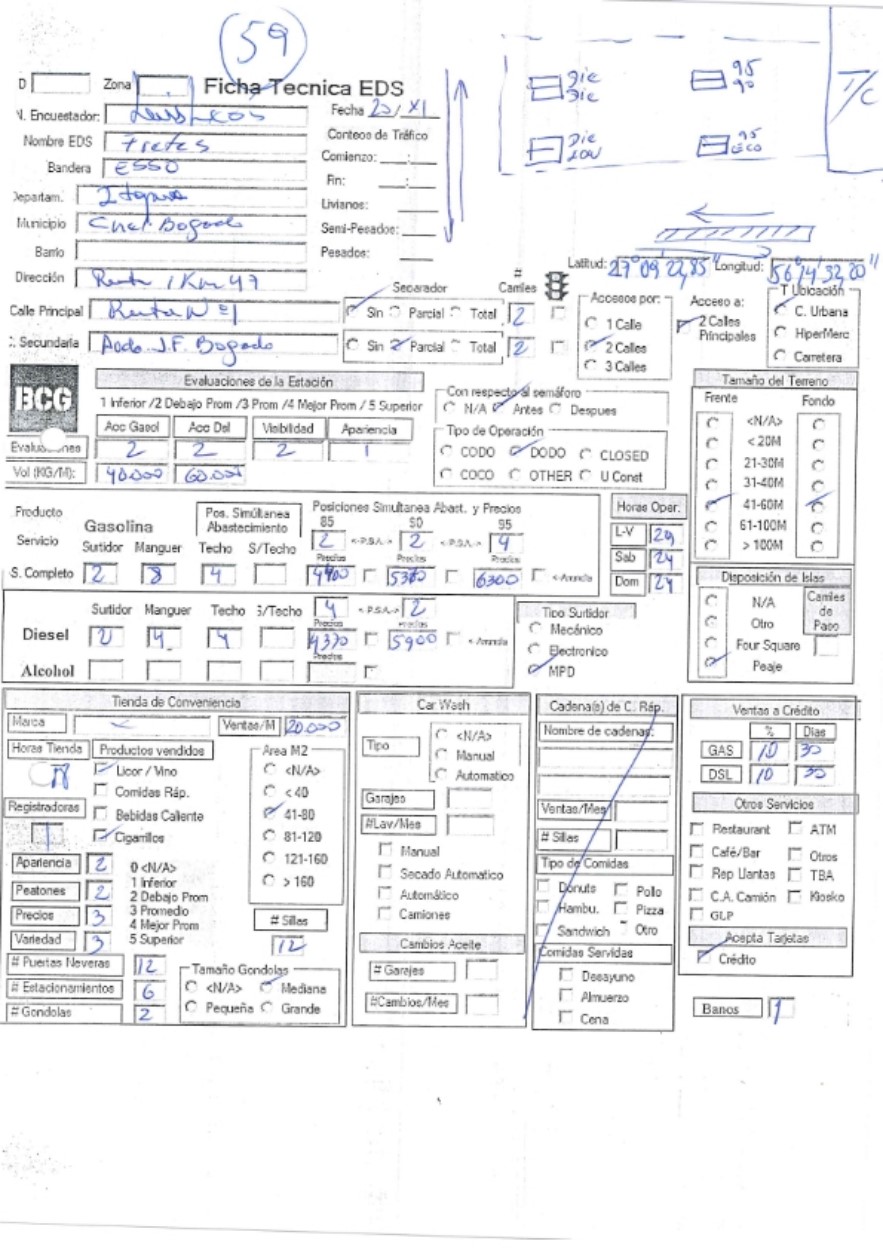 59
D Zona Ficha Tecnica EDS
N. Encuestador:
Fecha 20/XI
Nombre EDS Fretes
Conteos de Tráfico
Bandera ESSO
Comienzo: __:__
Fin: __:__
Departam. Itapua
Livianos:
Municipio Cnel. Bogado
Semi-Pesados:
Barrio
Pesados:
Dirección Ruta 1 Km 47
Die
Die
95
90
Die
95
ECO
T/C
Latitud: 27°09'22,85" Longitud: 56°14'32,20"
Calle Principal Ruta Nº1
Separador
# Carriles
Sin Parcial Total 2
C. Secundaria Avda. J.F. Bogado
Sin Parcial Total 2
Accesos por:
1 Calle
2 Calles
3 Calles
Acceso a:
2 Calles Principales
T Ubicación
C. Urbana
HiperMerc
Carretera
BCG
Evaluaciones de la Estación
1 Inferior /2 Debajo Prom /3 Prom /4 Mejor Prom / 5 Superior
Acc Gasol Acc Dsl Visibilidad Apariencia
Evaluaciones 2 2 2 1
Vol (KG/M): 40.000 60.000
Con respecto al semáforo
N/A Antes Despues
Tipo de Operación
CODO DODO CLOSED
COCO OTHER U Const
Tamaño del Terreno
Frente Fondo
<N/A>
< 20M
21-30M
31-40M
41-60M
61-100M
> 100M
Producto
Servicio
Gasolina
Pos. Simúltanea Abastecimiento
Posiciones Simultanea Abast. y Precios
85 90 95
2 <-P.S.A.-> 2 <-P.S.A.-> 4
Surtidor Manguer Techo S/Techo
Precios Precios Precios
S. Completo 2 8 4 4900 5360 6300 <-Anuncia
Horas Oper.
L-V 24
Sab 24
Dom 24
Disposición de Islas
N/A
Otro
Four Square
Peaje
Carriles de Paso
Surtidor Manguer Techo S/Techo
4 <-P.S.A.-> 2
Precios Precios
Diesel 2 4 4 4370 5900 <-Anuncia
Precios
Alcohol
Tipo Surtidor
Mecánico
Electronico
MPD
Tienda de Conveniencia
Marca Ventas/M 20.000
Horas Tienda Productos vendidos
18
Licor / Vino
Comidas Ráp.
Bebidas Caliente
Cigarrillos
Registradoras
1
Area M2
<N/A>
< 40
41-80
81-120
121-160
> 160
Apariencia 2
Peatones 2
Precios 3
Variedad 3
0 <N/A>
1 Inferior
2 Debajo Prom
3 Promedio
4 Mejor Prom
5 Superior
# Sillas
12
# Puertas Neveras 12
# Estacionamientos 6
# Gondolas 2
Tamaño Gondolas
<N/A> Mediana
Pequeña Grande
Car Wash
Tipo
<N/A>
Manual
Automatico
Garajes
#Lav/Mes
Manual
Secado Automatico
Automático
Camiones
Cambios Aceite
# Garajes
#Cambios/Mes
Cadena(s) de C. Ráp.
Nombre de cadenas:
Ventas/Mes
# Sillas
Tipo de Comidas
Donuts Pollo
Hambu. Pizza
Sandwich Otro
Comidas Servidas
Desayuno
Almuerzo
Cena
Ventas a Crédito
% Dias
GAS 10 30
DSL 10 30
Otros Servicios
Restaurant ATM
Café/Bar Otros
Rep Llantas TBA
C.A. Camión Kiosko
GLP
Acepta Tarjetas
Crédito
Banos 1